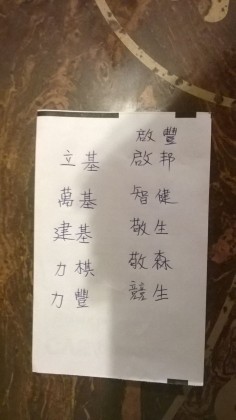 啟豐
立基 啟邦
萬基 智健
建基 敬生
力棋 敬森
力豐 競生